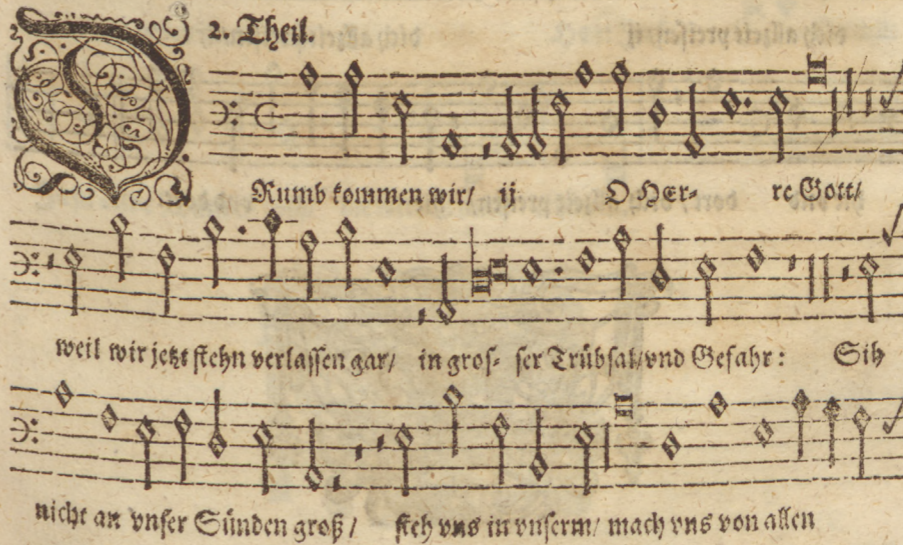 2. Theil.
DRumb kommen wir/ ij O HEr- re Gott/
weil wir jetzt stehn verlassen gar/ in gros- ser Trübsal/vnd Gefahr: Sih
nicht an vnser Sünden groß/ steh vns in vnserm/ mach vns von allen